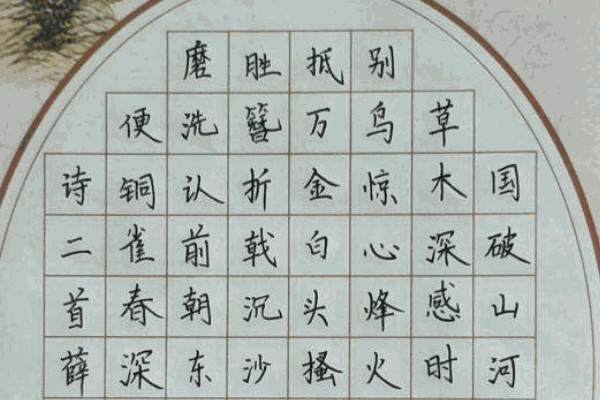 国破山河
草木深感时
别鸟惊心烽火
抵万金白头搔
胜簪折戟沉沙
磨洗认前朝东
便铜雀春深
诗二首薛